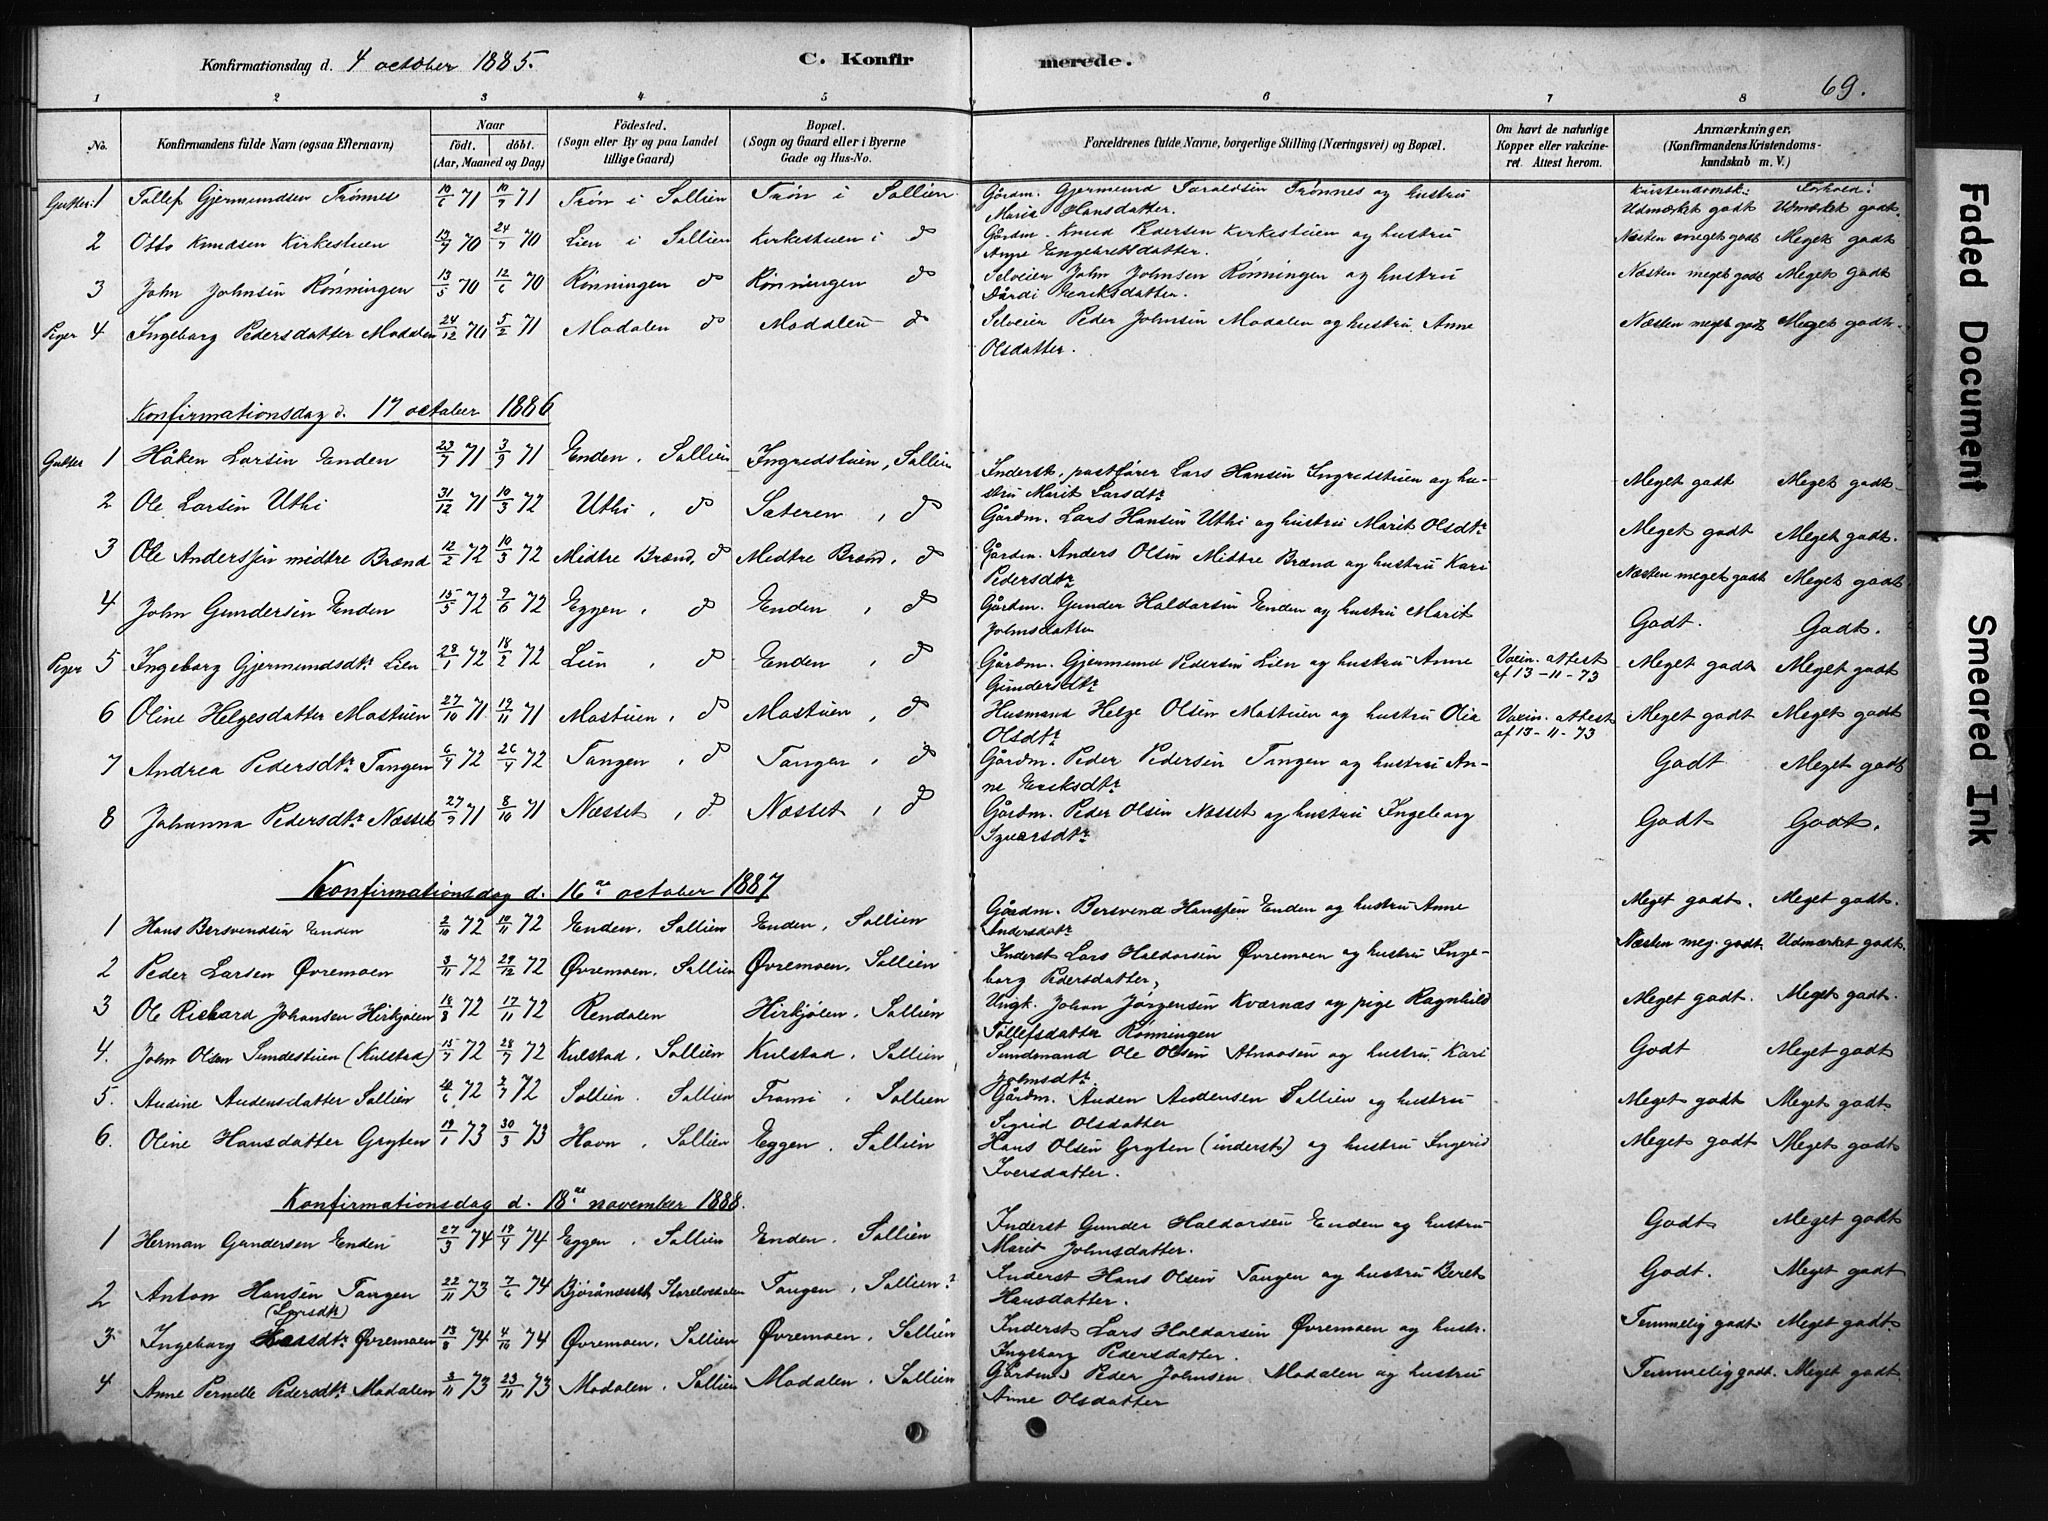 Konfirmationsdag d. 4 october 1885.
C. Konfirmerede.
69.
1 2 3 4 5 6 7 8
No.
Konfirmandens fulde Navn (ogsaa Efternavn)
Naar
født. døbt.
(Aar, Maaned og Dag)
Fødested.
(Sogn eller By og paa Landet
tillige Gaard)
Bopæl.
(Sogn og Gaard eller i Byerne
Gade og Hus-No.
Forældrenes fulde Navne, borgerlige Stilling (Næringsvei) og Bopæl.
Om havt de naturlige
Kopper eller vakcine-
ret. Attest herom.
Anmærkninger.
(Konfirmandens Kristendoms-
kundskab m. V.)
Kristendomsk.: Forhold:
Gutter: 1 Tollef Gjermundsen Trønnes 10/6 71 10/7 71 Trøn i Sollien Trøn i Sollien Gårdm. Gjermund Taraldsen Trønnes og hustru Udmærket godt Udmærket godt.
Maria Hansdatter.
2 Otto Knudsen Kirkestuen 13/7 70 24/7 70 Lien i Sollien Kirkestuen i do Gårdm. Knud Pedersen Kirkestuen og hustru Næsten meget godt Meget godt
Anne Engebretsdatter.
3 John Johnsen Rønningen 13/5 70 12/6 70 Rønningen do Rønningen do Selveier John Johnsen Rønningen og hustru Næsten meget godt Meget godt
Dårdi Eriksdatter.
Piger 4 Ingeborg Pedersdatter Modalen 24/12 70 5/2 71 Modalen do Modalen do Selveier Peder Johnsen Modalen og hustru Anne Næsten meget godt Meget godt.
Olsdatter.
Konfirmationsdag d. 17 october 1886
Gutter 1 Håken Larsen Enden 23/7 71 3/9 71 Enden, Sollien Ingridstuen, Sollien Inderst, postfører Lars Hansen Ingridstuen og hu- Meget godt Meget godt
stru Marit Larsdtr
2 Ole Larsen Uthi 31/12 71 10/3 72 Uthi, do Sæteren, do Gårdm. Lars Hansen Uthi og hustru Marit Olsdtr Meget godt Meget godt.
3 Ole Anderssen midtre Brænd 12/2 72 10/3 72 Midtre Brænd, do Midtre Brænd, do Gårdm. Anders Olsen Midtre Brænd og hustru Kari Næsten meget godt Meget godt
Pedersdtr
4 John Gundersen Enden 15/5 72 9/6 72 Eggen, do Enden, do Gårdm. Gunder Haldorsen Enden og hustru Marit Godt. Godt.
Johnsdatter
Piger 5 Ingeborg Gjermundsdtr Lien 23/1 72 18/2 72 Lien, do Enden, do Gårdm. Gjermund Pedersen Lien og hustru Anne Vaccin. attest Meget godt Meget godt
Gundersdtr af 13-11-73
6 Oline Helgesdatter Mostuen 27/10 71 19/11 71 Mostuen, do Mostuen, do Husmand Helge Olsen Mostuen og hustru Olia Vaccin. attest Meget godt Meget godt
Olsdtr af 13-11-73
7 Andrea Pedersdtr Tangen 6/4 72 26/4 72 Tangen, do Tangen, do Gårdm. Peder Pedersen Tangen og hustru An- Godt Meget godt
ne Eriksdtr
8 Johanna Pedersdtr Næsset 27/7 71 8/10 71 Næsset, do Næsset, do Gårdm. Peder Olsen Næsset og hustru Ingeborg Godt Godt.
Syversdtr
Konfirmationsdag d. 16de october 1887
1 Hans Bersvendsen Enden 2/10 72 10/11 72 Enden, Sollien Enden, Sollien Gårdm. Bersvend Hanssen Enden og hustru Anne Meget godt. Meget godt.
Andersdatr
2 Peder Larsen Øvremoen 3/11 72 29/12 72 Øvremoen, Sollien Øvremoen, Sollien Inderst Lars Haldorsen Øvremoen og hustru Inge- Næsten meg. godt. Udmærket godt.
borg Pedersdatter,
3 Ole Richard Johansen Hirkjølen 18/8 72 17/11 72 Rendalen Hirkjølen, Sollien Ungk. Johan Jørgensen Kværnæs og pige Ragnhild Meget godt. Meget godt.
Tollefsdatter Rønningen
4. John Olsen Sundestuen (Kulstad) 15/7 72 28/7 72 Kulstad, Sollien Kulstad, Sollien Sundmand Ole Olsen Atnaosen og hustru Kari Godt Meget godt
Johnsdtr.
5. Audine Audensdatter Sollien 4/6 72 2/7 72 Sollien, Sollien Tromi, Sollien Gårdm. Auden Audensen Sollien og hustru Meget godt Meget godt
Sigrid Olsdatter
6. Oline Hansdatter Gryten 19/1 73 30/3 73 Havn, Sollien Eggen, Sollien Hans Olsen Gryten (inderst) og hustru Ingerid Meget godt Meget godt
Iversdatter.
Konfirmationsdag d. 18de november 1888.
1 Herman Gundersen Enden 27/3 74 19/4 74 Eggen, Sollien Enden, Sollien Inderst Gunder Haldorsen Enden og hustru Godt Meget godt
Marit Johnsdatter.
2 Anton Hansen Tangen 22/11 73 7/6 74 Bjørånæsset, Storelvedalen Tangen, Sollien Inderst Hans Olsen Tangen og hustru Beret Godt. Meget godt
Hansdatter.
(Larsdtr)
3 Ingeborg Øvremoen 13/8 74 4/10 74 Øvremoen, Sollien Øvremoen, Sollien Inderst Lars Haldorsen Øvremoen og hustr. Temmelig godt. Meget godt.
Ingeborg Pedersdatter.
4 Anne Pernelle Pedersdtr Modalen 3/11 73 23/11 73 Modalen, Sollien Modalen, Sollien Gårdm. Peder Johnsen Modalen og hustru Temmelig godt. Meget godt.
Anne Olsdatter
Faded Document
Smeared Ink